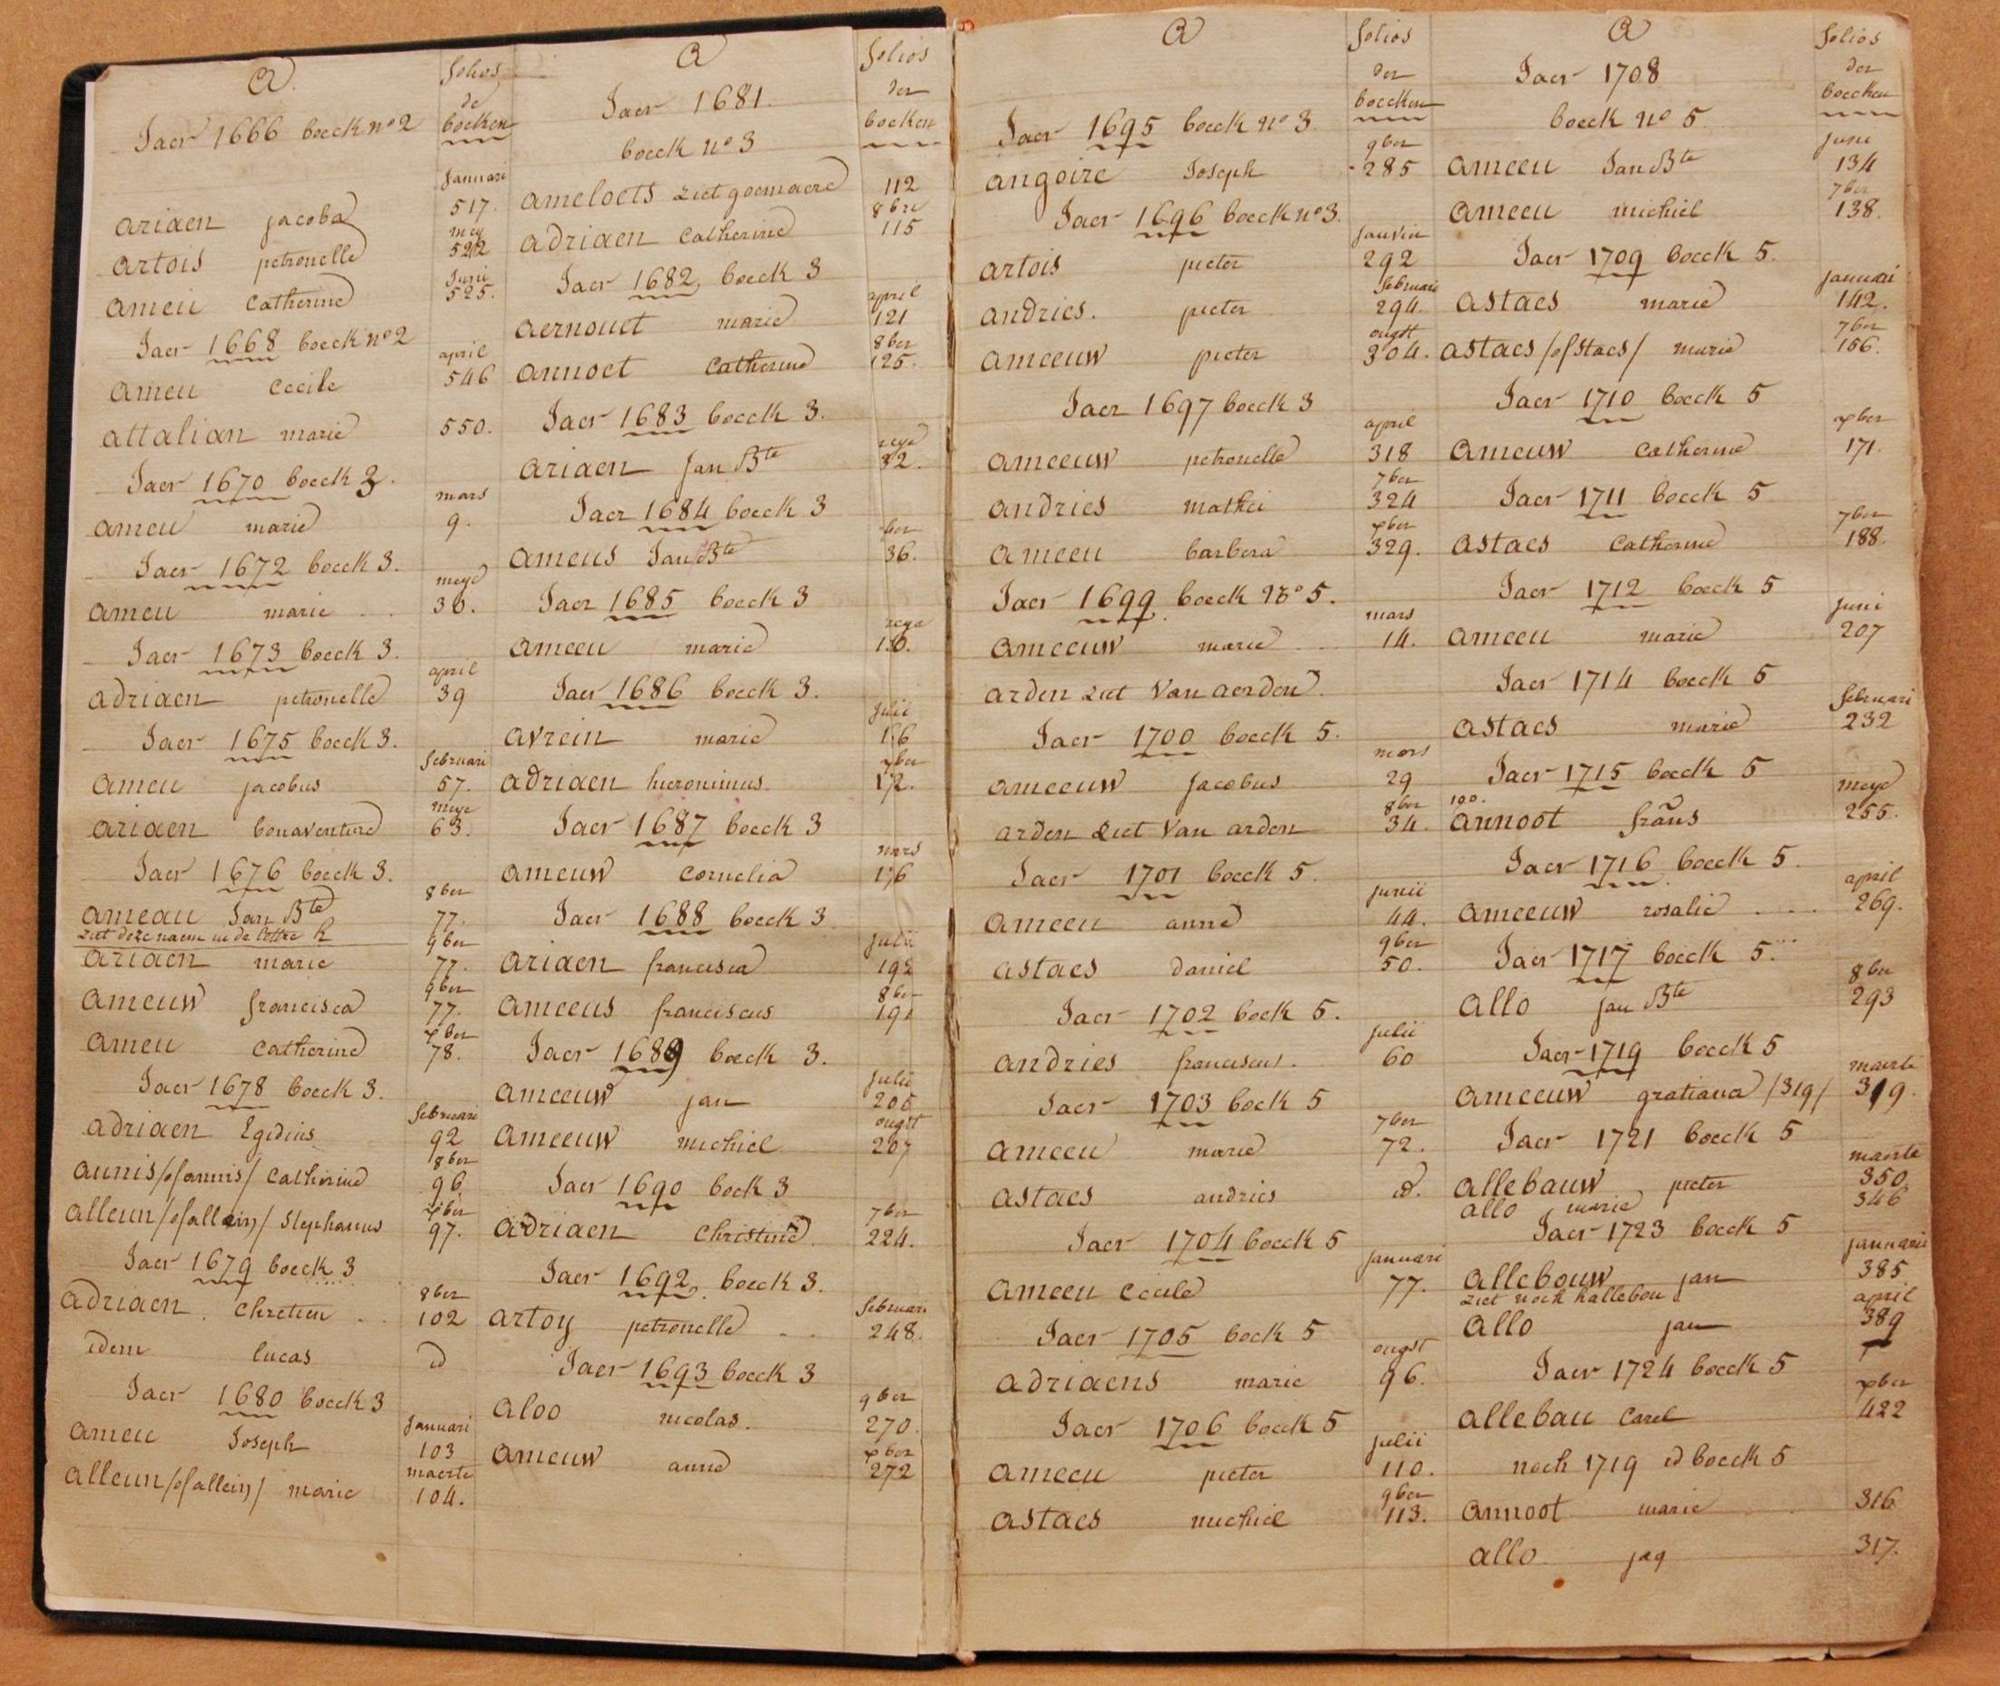 A
folios
de
boeken
Jaer 1666 boeck nº 2
Januari
ariaen jacoba 517.
mey
artois petronelle 522
Junii
ameu Catherine 525.
Jaer 1668 boeck nº 2
april
ameu Cecile 546
attalian marie 550.
Jaer 1670 boeck 3.
mars
ameu marie 9.
Jaer 1672 boeck 3.
meye
ameu marie 30.
Jaer 1673 boeck 3.
april
adriaen petronelle 39
Jaer 1675 boeck 3.
februari
ameu jacobus 57.
meye
ariaen bonaventure 63.
Jaer 1676 boeck 3.
8ber
ameau Jan Bte 77.
ziet deze naem in de lettre h
9ber
ariaen marie 77.
9ber
ameuw francisca 77.
xber
ameu Catherine 78.
Jaer 1678 boeck 3.
februari
adriaen Egidius 92
8ber
aunis /of annis/ Catherine 96
xber
alleun /of allein/ Stephanus 97.
Jaer 1679 boeck 3
8ber
adriaen Chretien 102
idem lucas id
Jaer 1680 boeck 3
Januari
ameu Joseph 103
maerte
alleun /of allein/ marie 104.
A
folios
der
boeken
Jaer 1681.
boeck nº 3
ameloets ziet goemaere 112
8bre
adriaen Catherine 115
Jaer 1682 boeck 3
april
aernouct marie 121
8ber
annoct Catherine 125.
Jaer 1683 boeck 3.
ariaen Jan Bte 32.
Jaer 1684 boeck 3
ber
ameus Jan Bte 36.
Jaer 1685 boeck 3
ameeu marie
Jaer 1686 boeck 3.
Julii
avrein marie 16
xber
adriaen hieronimus 17.
Jaer 1687 boeck 3
mars
ameuw Cornelia 176
Jaer 1688 boeck 3
Julii
ariaen francisca 192
8ber
ameeus franciscus 191
Jaer 1689 boeck 3.
Julii
ameeuw jan 205
ougst
ameeuw michiel 207
Jaer 1690 boek 3
7ber
adriaen Christine 224.
Jaer 1692 boeck 3.
februari
artoy petronelle 248.
Jaer 1693 boeck 3
9ber
aloo nicolas. 270.
xber
ameuw anne 272
A
folios
der
boecken
Jaer 1695 boeck nº 3
9ber
angoire Joseph 285
Jaer 1696 boeck nº 3.
janvier
artois pieter 292
februarii
andries. pieter 294.
ougst
ameeuw pieter 304.
Jaer 1697 boeck 3
april
ameeuw petronelle 318
7ber
andries mathei 324
xber
ameeu barbera 329.
Jaer 1699 boeck Nº 5.
mars
ameeuw marie 14.
arden ziet Van aerden.
Jaer 1700 boeck 5.
mars
ameeuw Jacobus 29
8ber
arden ziet Van arden 34.
Jaer 1701 boeck 5.
junii
ameeu anne 44.
9ber
astaes Daniel 50.
Jaer 1702 boek 5.
julii
andries franciscus. 60
Jaer 1703 boek 5
7ber
ameeu marie 72.
astaes andries id.
Jaer 1704 boeck 5
januari
ameeu Cecile 77.
Jaer 1705 boek 5
ougst
adriaens marie 96.
Jaer 1706 boeck 5
julii
ameeu pieter 110.
9ber
astaes michiel 113.
A
folios
der
boecken
Jaer 1708
boeck nº 5
juni
ameeu Jan Bte 134
7ber
ameeu michiel 138.
Jaer 1709 boeck 5.
januari
astaes marie 142.
7ber
astaes /of staes/ marie 156.
Jaer 1710 boeck 5
xber
ameuw Catherine 171.
Jaer 1711 boeck 5
7ber
astaes Catherine 188.
Jaer 1712 boeck 5
juni
ameeu marie 207
Jaer 1714 boeck 5
februari
astaes marie 232
Jaer 1715 boeck 5
meye
annoot frãns 255.
Jaer 1716 boeck 5.
april
ameeuw rosalie 269.
Jaer 1717 boeck 5.
8ber
allo jan Bte 293
Jaer 1719 boeck 5
maerte
ameeuw gratiana /319/ 319.
Jaer 1721 boeck 5
maerte
allebauw pieter 350
allo marie 346
Jaer 1723 boeck 5
januarii
allebouw jan 385
ziet noch hallebou
april
allo jan 389
Jaer 1724 boeck 5
xber
allebau Carel 422
noch 1719 id boeck 5
annoot marie 316
allo jaq 317.